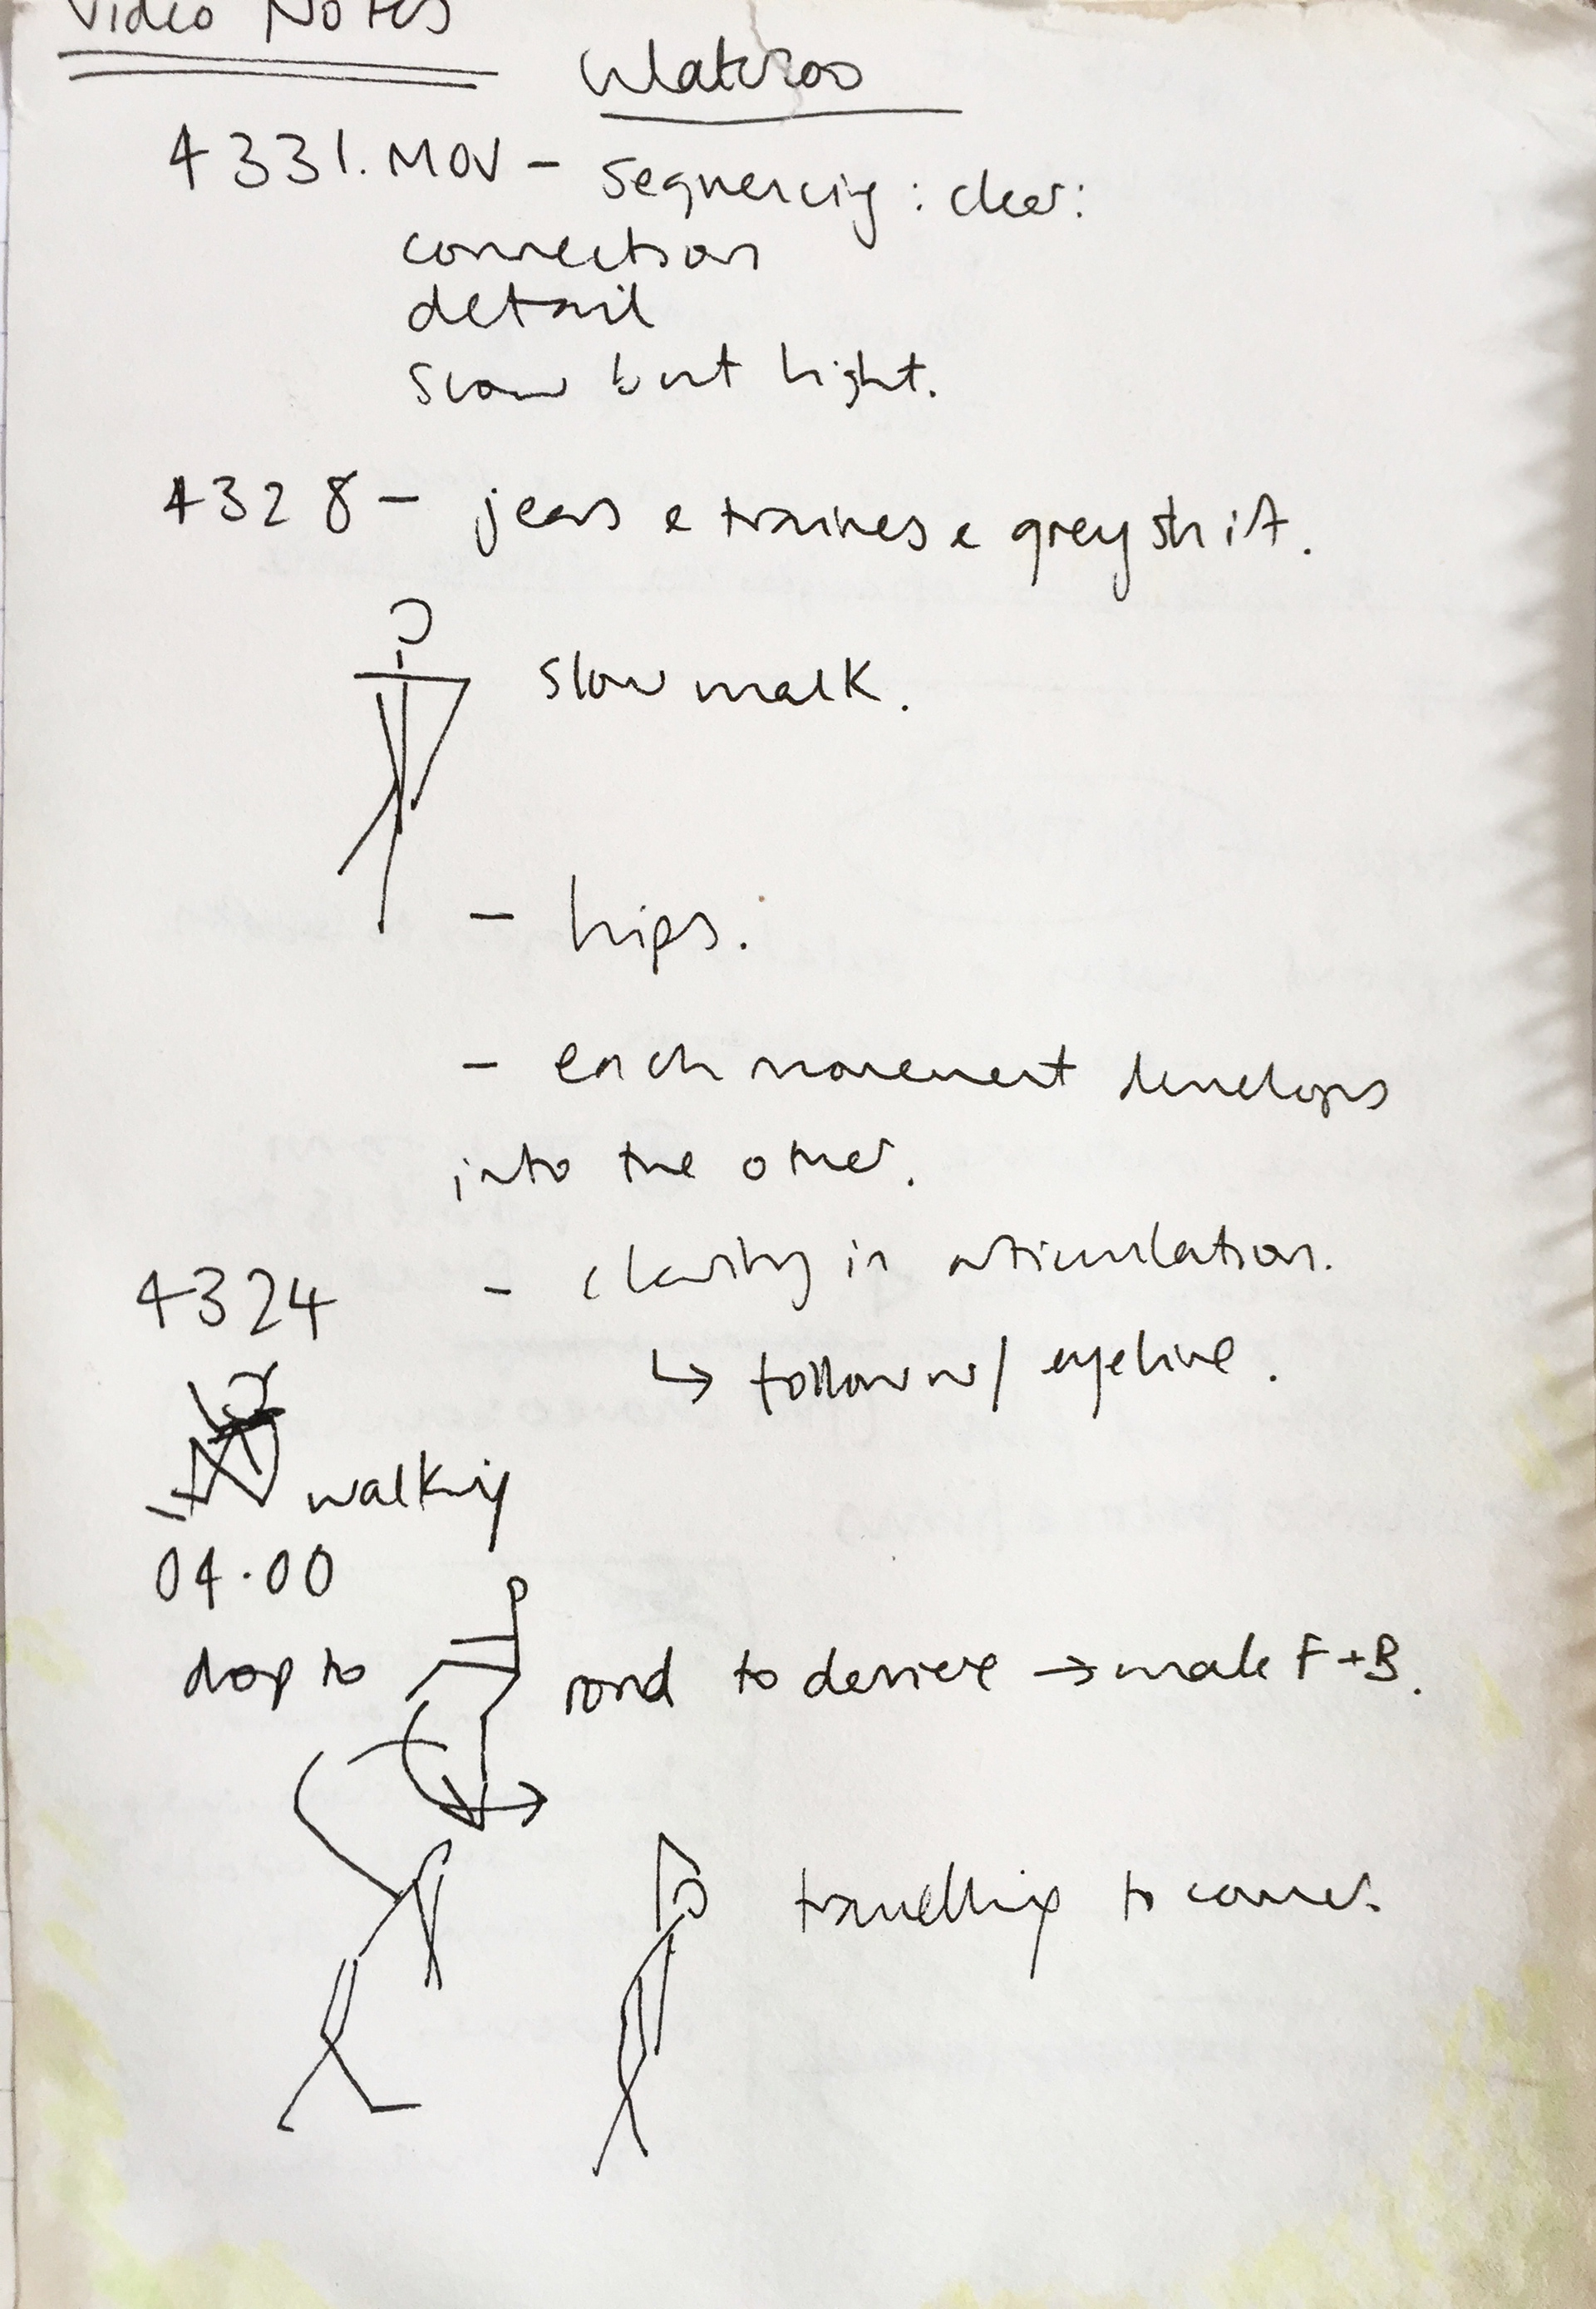 Video Notes
Waterloo
4331.MOV - Sequencing : clear:
connection
detail
slow but light.
4328 - jeans & trainers & grey shirt.
slow walk.
- hips.
- each movement develops
into the other.
4324 - clarity in articulation.
↳ follow w/ eyeline.
walking
04.00
drop to rond to derriere → make F+B.
travelling to corner.